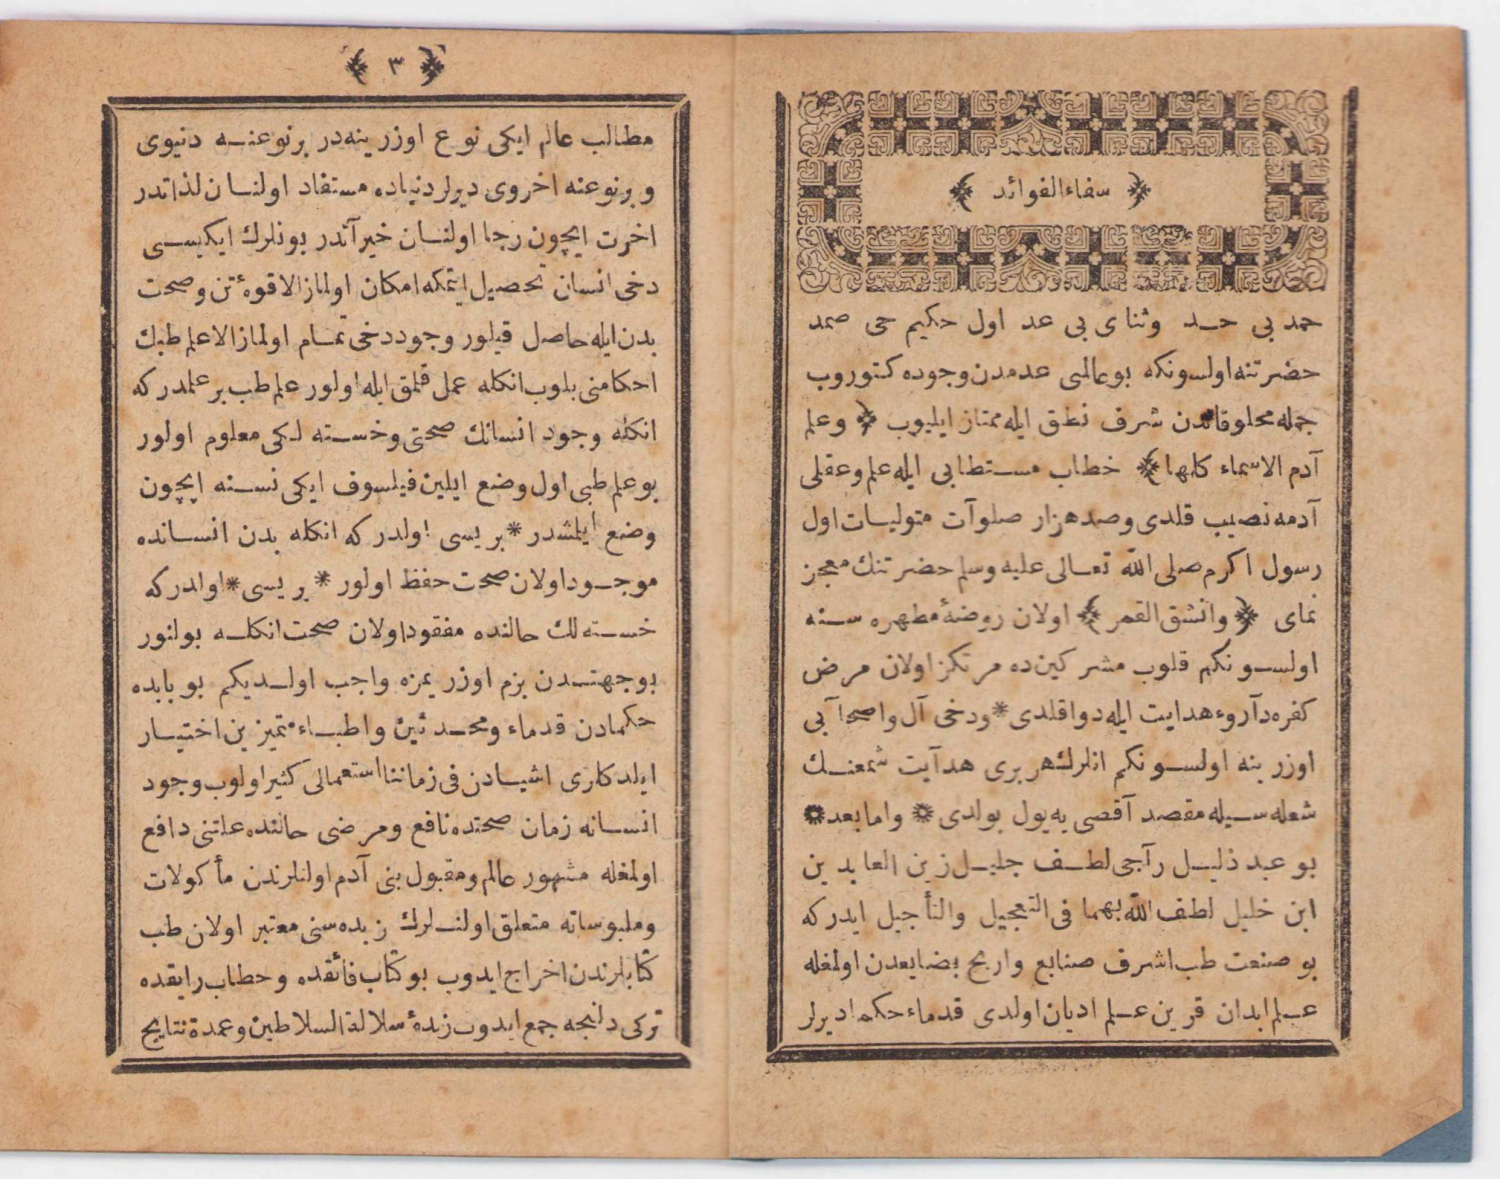 ﴿ شفاءالفوائد ﴾
حمد بی حد وثنای بی عد اول حکیم حی صمد
حضرتنه اولسونکه بوعالمی عدمدن وجوده کتوروب
جمله مخلوقاتدن شرف نطق ایله ممتاز ایلیوب ﴿ وعلم
آدم الاسماء کلها ﴾ خطاب مستطابی ایله علم وعقلی
آدمه نصیب قلدی وصد هزار صلوآت متولیات اول
رسول اکرم صلی الله تعالی علیه وسلم حضرتنك معجز
نمای ﴿ وانشق القمر ﴾ اولان روضهٔ مطهره سنه
اولسونکم قلوب مشرکین ده مرتکز اولان مرض
کفره دآروء هدایت ایله دوا قلدی * ودخی آل واصحابی
اوزرینه اولسونکم انلرك هربری هدآیت شمعنك
شعله سیله مقصد آقصی یه یول بولدی * وامابعد *
بو عبد ذلیل رآجی لطف جلیل زین العابدین
ابن خلیل لطف الله بهما فی التعجیل والتأجیل ایدرکه
بو صنعت طب اشرف صنایع واربح بضایعدن اولمغله
علم ابدان قرین علم ادیان اولدی قدماء حکما دیرلر
﴿ ٣ ﴾
مطالب عالم ایکی نوع اوزرینه در برنوعنه دنیوی
وبرنوعنه اخروی دیرلر دنیاده مستفاد اولنان لذاتدر
اخرت ایچون رجا اولنان خیرآتدر بونلرك ایکیسی
دخی انسان تحصیل ایتمکه امکان اولماز الا قوهٔ تن وصحت
بدن ایله حاصل قیلور وجود دخی تمام اولماز الا علم طبك
احکامنی بلوب انکله عمل قلمق ایله اولور علم طب بر علمدر که
انکله وجود انسانك صحتی وخسته لکی معلوم اولور
بوعلم طبی اول وضع ایلین فیلسوف ایکی نسنه ایچون
وضع ایلمشدر * بریسی اولدر که انکله بدن انسانده
موجود اولان صحت حفظ اولور * بریسی * اولدر که
خسته لك حالنده مفقود اولان صحت انکله بولنور
بوجهتدن بزم اوزریمزه واجب اولدیکم بو بابده
حکمادن قدماء ومحدثین واطباء متمیزین اختیار
ایلدکلری اشیادن فی زماننا استعمالی کثیر اولوب وجود
انسانه زمان صحتده نافع ومرضی حالنده علتنی دافع
اولمغله مشهور عالم ومقبول بنی آدم اولنلرندن مأکولات
وملبوساته متعلق اولنلرك زبده سنی معتبر اولان طب
کتابلرندن اخراج ایدوب بو کتاب فائقده وخطاب رایقده
ترکی دلنجه جمع ایدوب زبدهٔ سلالة السلاطین وعمدة نتایج